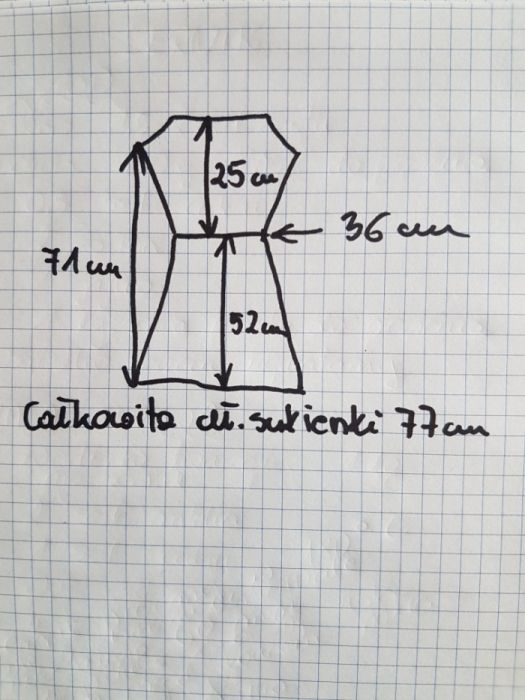 25 cm
36 cm
71 cm
52 cm
Całkowita dł. sukienki 77 cm